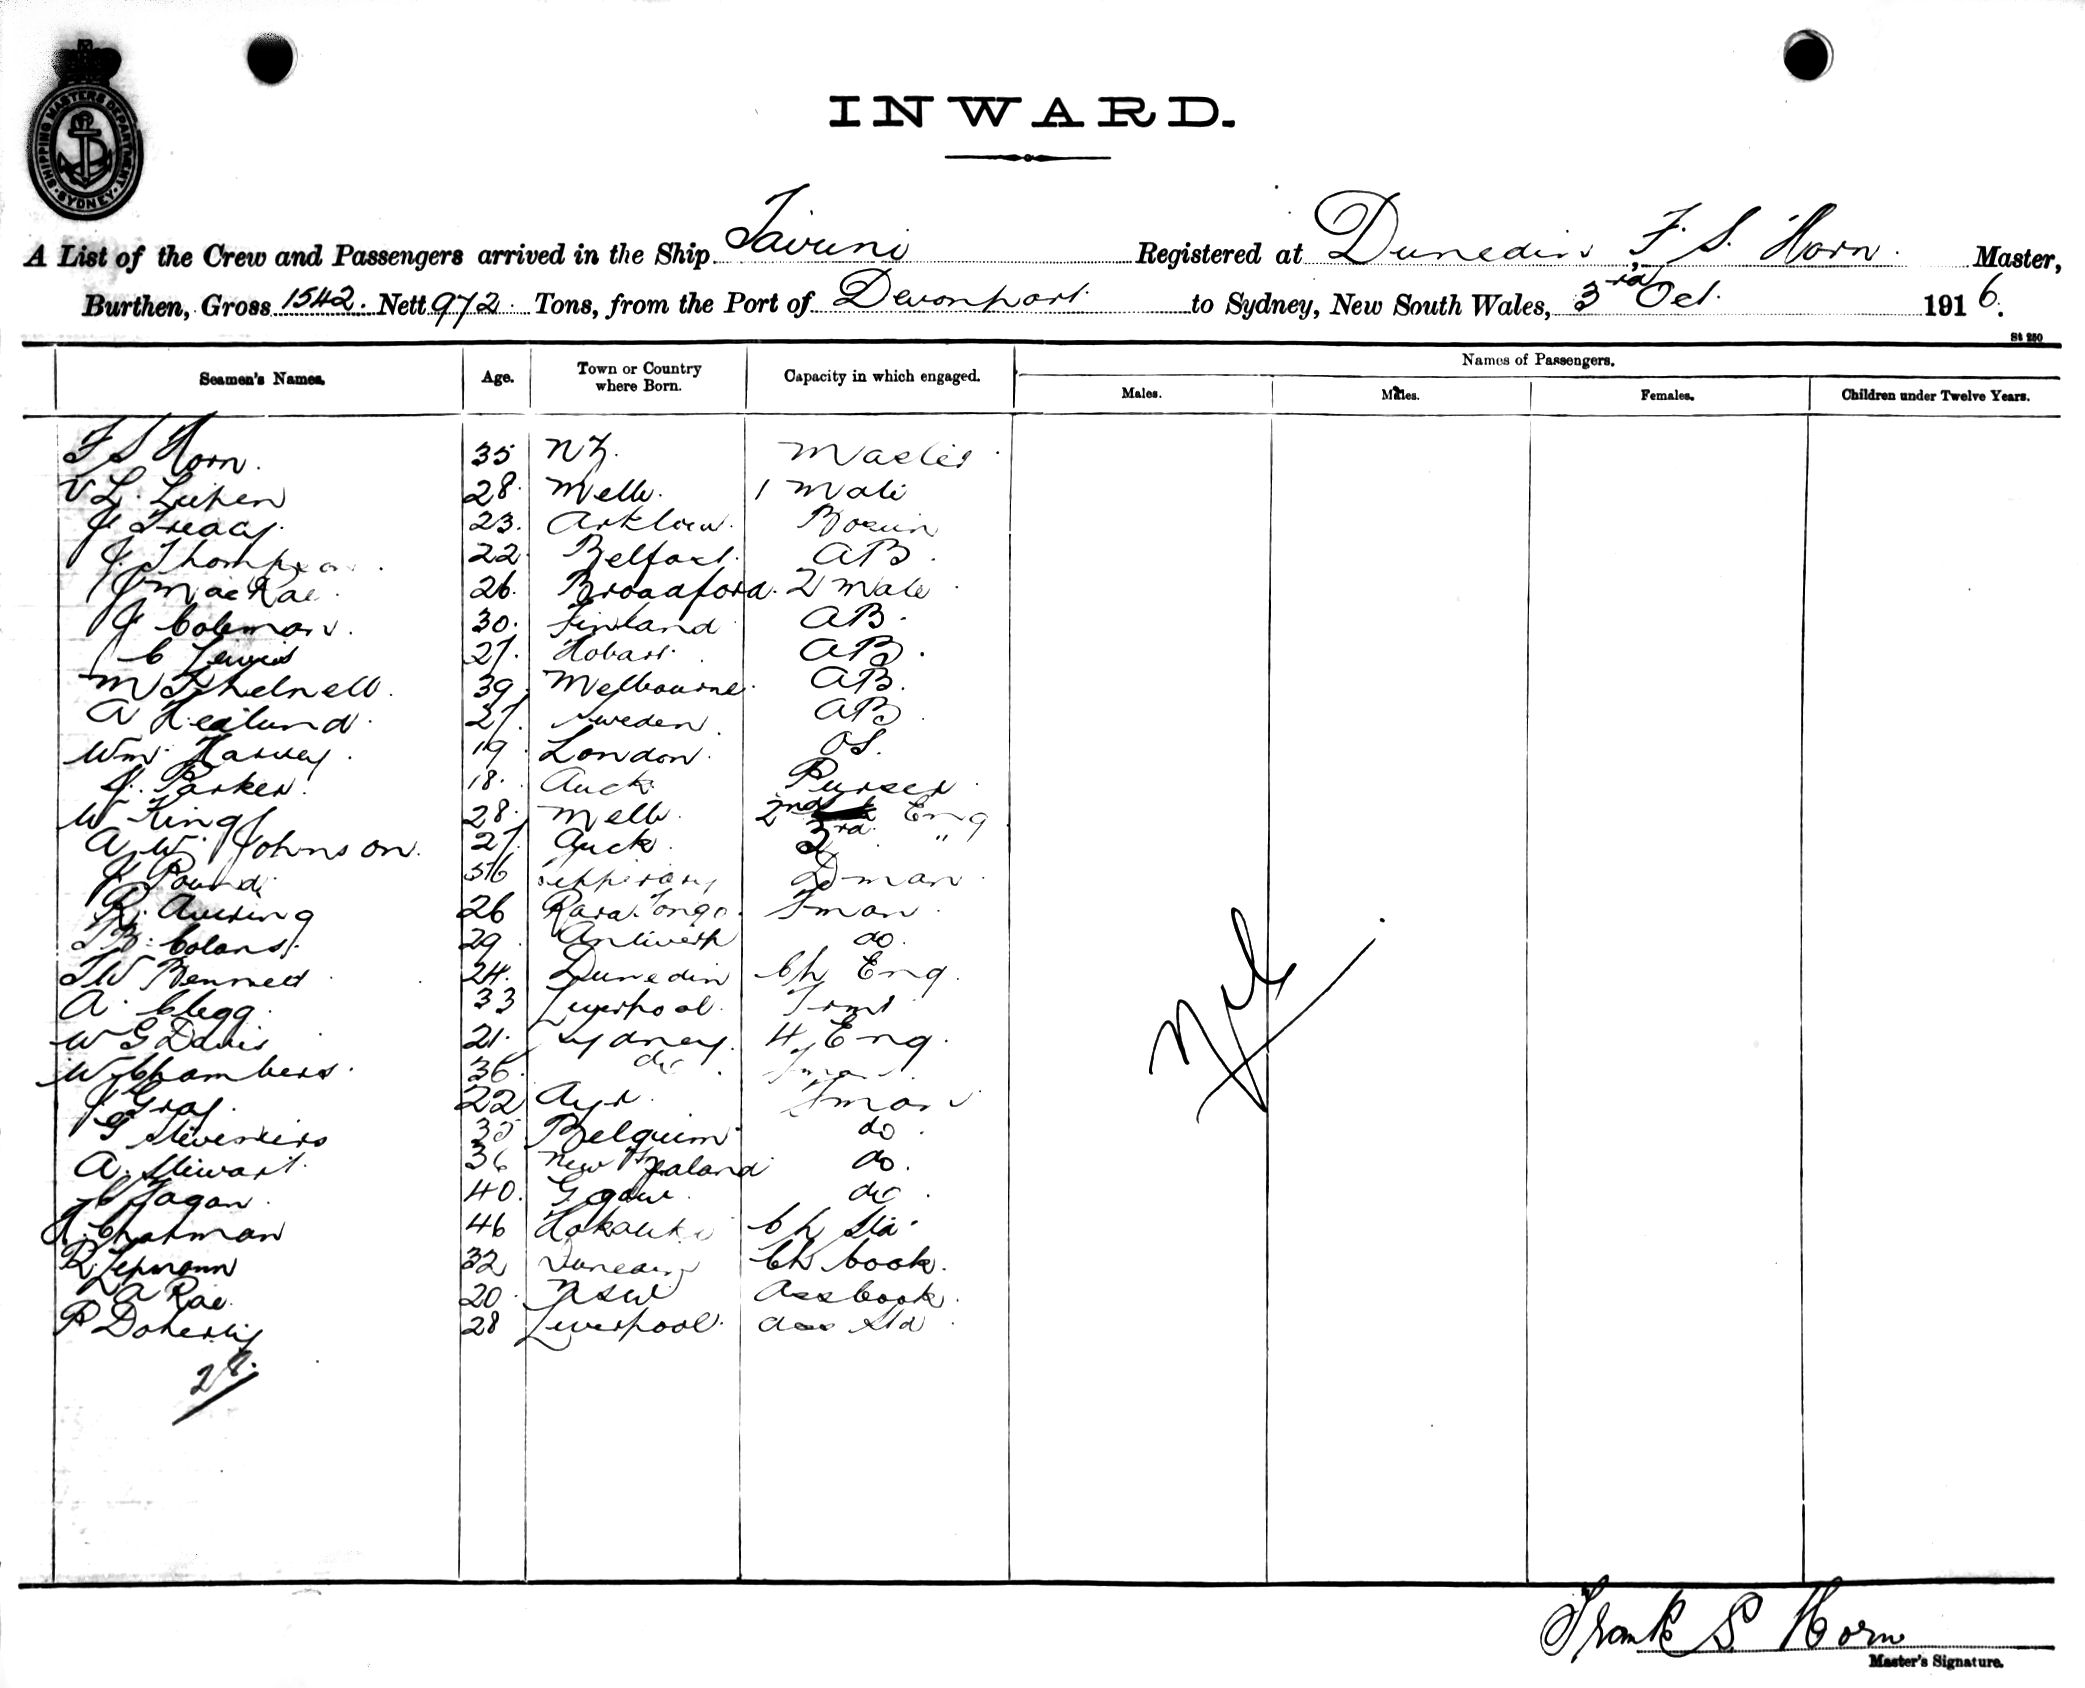 SHIPPING MASTERS DEPARTMENT
SYDNEY
INWARD.
A List of the Crew and Passengers arrived in the Ship Tavuni Registered at Dunedin, F. S. Horn. Master,
Burthen, Gross 1542. Nett 972. Tons, from the Port of Devonport to Sydney, New South Wales, 3rd Oct. 1916.
St 250
Seamen's Names. Age. Town or Country where Born. Capacity in which engaged. Names of Passengers.
Males. Males. Females. Children under Twelve Years.
F S Horn. 35 NZ. Master
V L. 28. Melb. 1 Mate
J Treacy. 23. Arklow. Bosun
J. Thompson. 22 Belfast. AB.
J MacRae. 26. Broadford. 2 Mate
J Coleman. 30. Finland AB.
C Lewis 27. Hobart. AB.
M 39. Melbourne. AB.
A Hedlund. 27. Sweden. AB.
Wm. Harvey. 19 London. OS.
J. Parker. 18. Auck. Purser
W King 28. Melb. 2nd Eng
A. W. Johnson. 27. Auck. 3rd. "
J Pound. 36 Tipperary Dman.
R. 26 Rara Tonga. Fman.
29. Antwerp do.
T W Bennett 24. Dunedin Ch Eng.
A. Clegg. 33 Liverpool.
W G Davis 21. Sydney. 4 Eng.
W Chambers. 36. do.
J Gray. 22 Ayr. Fman
G 35 Belguim. do.
A. Stewart. 36 New Zealand do.
Fagan. 40. do.
Chapman 46 Ch Std.
R. 32 Dunedin Ch Cook.
A Rae. 20. NSW Ass Cook.
P Doherty 28 Liverpool. Ass Std
28.
Nil
Frank S Horn
Master's Signature.